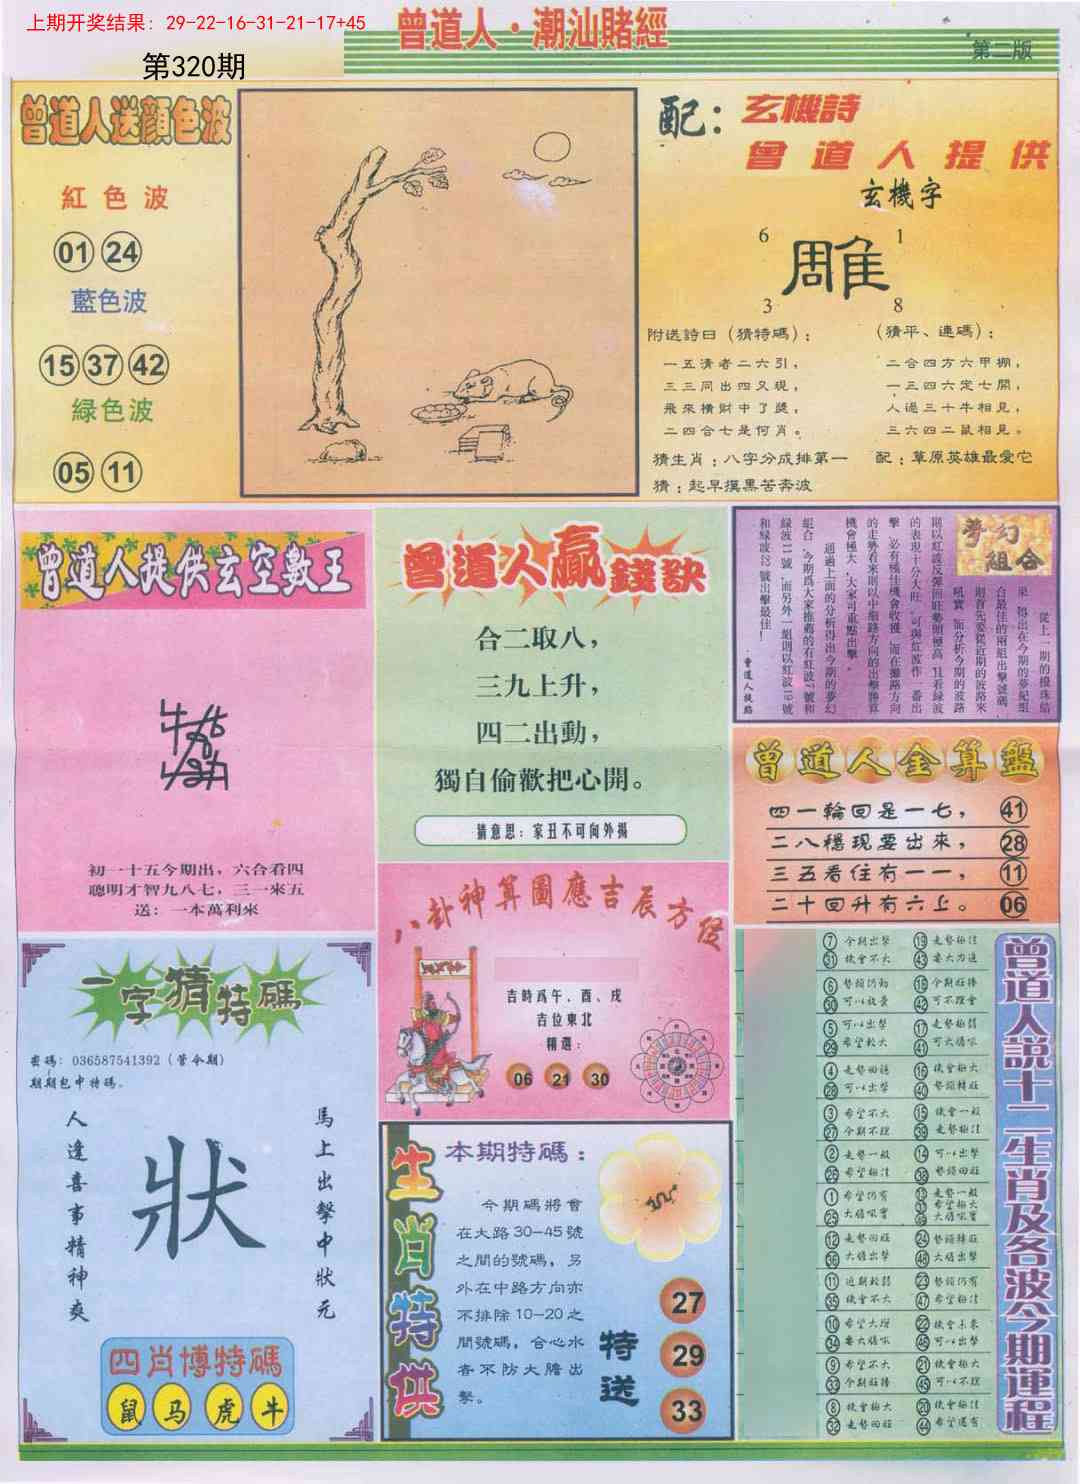 上期开奖结果: 29-22-16-31-21-17+45
第320期
曾道人·潮汕賭經
第二版
曾道人送顏色波
紅色波
01 24
藍色波
15 37 42
緑色波
05 11
配:
玄機詩
曾道人提供
玄機字
6 1
雕
3 8
附送詩曰（猜特碼）:
一五清者二六引,
三三同出四又現,
飛來橫財中了獎,
二四合七是何肖。
（猜平、連碼）:
二合四方六甲棚,
一三四六定七開,
人過三十牛相見,
三六四二鼠相見。
猜生肖:八字分成排第一
配:草原英雄最愛它
猜:起早摸黑苦奔波
曾道人提供玄空數王
初一十五今期出, 六合看四
聰明才智九八七, 三一來五
送: 一本萬利來
曾道人贏錢訣
合二取八,
三九上升,
四二出動,
獨自偷歡把心開。
猜意思: 家丑不可向外揚
夢幻
組合
從上一期的攪珠結
果,得出在今期的夢幻組
合最佳的兩組出擊號碼,
則首先要從近期的波路來
吼實,而分析今期的波路
則以紅波反彈回旺勢頭極高,且看緑波
的表現十分大旺,可與紅波作一番出
擊,必有極佳機會收獲,而在攤路方向
的走勢看來則以中細路方向的出擊勝算
機會極大,大家可重點出擊。
通過上面的分析得出今期的夢幻
組合,今期爲大家推薦的有紅波7號和
緑波11號,而另外一組則以紅波19號
和緑波22號出擊最佳!
·曾道人提路
曾道人金算盤
四一輪回是一七, 41
二八穩現要出來, 28
三五看住有一一, 11
二十回升有六上。 06
八卦神算圖應吉辰方位
吉時爲午、酉、戌
吉位東北
精選:
06 21 30
一字猜特碼
密碼: 036587541392（管今期）
期期包中特碼。
人逢喜事精神爽
狀
馬上出擊中狀元
四肖博特碼
鼠 马 虎 牛
生肖特供
本期特碼:
今期碼將會
在大路30-45號
之間的號碼, 另
外在中路方向亦
不排除10-20之
間號碼, 合心水
者不防大膽出
擊。
特送
27
29
33
曾道人説十二生肖及各波今期運程
7 今期出擊 19 走勢極佳
31 機會不大 43 要大力追
6 勢頭仍勁 18 今期旺捧
30 可以放棄 42 可不理會
5 可以出擊 17 走勢極弱
29 希望較大 41 可大膽吼
4 走勢回穩 16 機會極大
28 可以出擊 40 勢頭轉旺
3 希望不大 15 機會一般
27 今期不理 39 走勢極佳
2 走勢一般 14 可以出擊
26 希望極佳 38 勢頭回旺
1 希望仍有 13 走勢一般
25 大膽吼實 37 希望極大
49 大膽吼實
12 走勢回旺 24 勢頭轉旺
36 大膽出擊 48 大膽出擊
11 近期較弱 23 勢頭仍有
35 機會不大 47 希望極佳
10 希望大增 22 機會未來
34 要大膽吼 46 可以出擊
9 希望不大 21 機會極大
33 今期旺捧 45 可以不理
8 機會極大 20 機會極佳
32 走勢回旺 44 希望還有